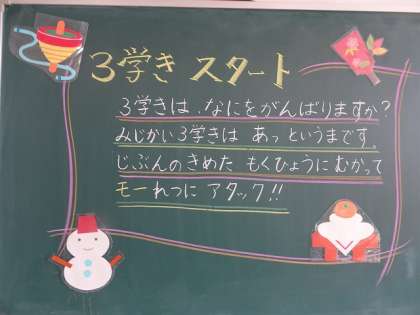 3学き スタート
3学きは、なにをがんばりますか?
みじかい3学きは あっというまです。
じぶんのきめた もくひょうに むかって
モーれつに アタック!!